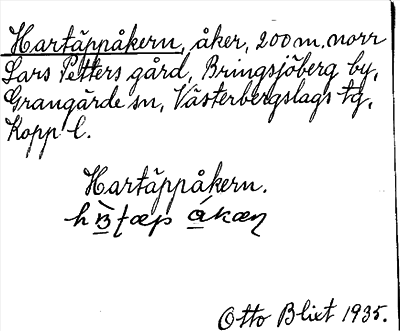 Hartäppåkern, åker, 200 m. norr
Lars Petters gård, Bringsjöberg by,
Grangärde sn, Västerbergslags tg,
Kopp l.
Hartäppåkern.
Otto Blixt 1935.